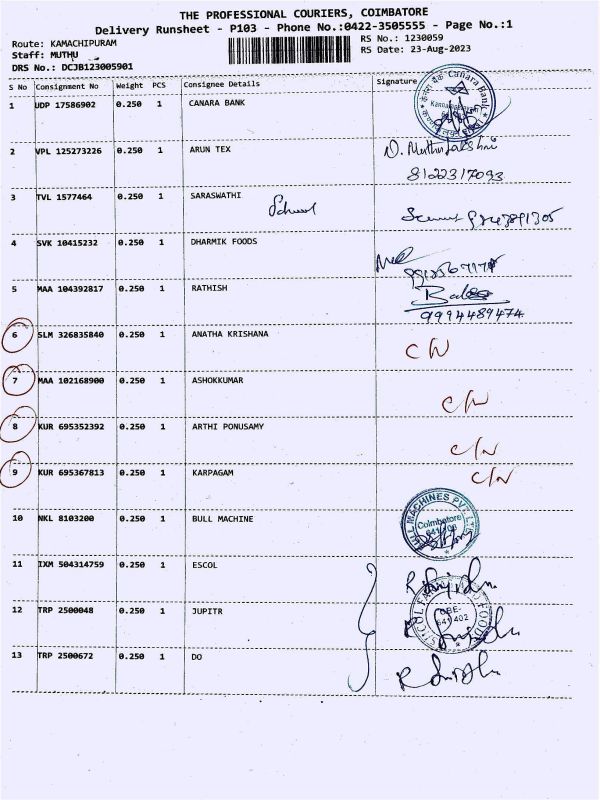 THE PROFESSIONAL COURIERS, COIMBATORE
Delivery Runsheet - P103 - Phone No.:0422-3505555 - Page No.:1
Route: KAMACHIPURAM RS No.: 1230059
Staff: MUTHU RS Date: 23-Aug-2023
DRS No.: DCJB123005901
S No Consignment No Weight PCS Consignee Details Signature
1 UDP 17586902 0.250 1 CANARA BANK
Canara Bank
2 VPL 125273226 0.250 1 ARUN TEX
8122317093
3 TVL 1577464 0.250 1 SARASWATHI
School
4 SVK 10415232 0.250 1 DHARMIK FOODS
5 MAA 104392817 0.250 1 RATHISH
9994489474
6 SLM 326835840 0.250 1 ANATHA KRISHANA
C/N
7 MAA 102168900 0.250 1 ASHOKKUMAR
C/N
8 KUR 695352392 0.250 1 ARTHI PONUSAMY
C/N
9 KUR 695367813 0.250 1 KARPAGAM C/N
10 NKL 8103200 0.250 1 BULL MACHINE
MACHINES PVT. Coimbatore
11 IXM 504314759 0.250 1 ESCOL
12 TRP 2500048 0.250 1 JUPITR
CBE-
641 402
13 TRP 2500672 0.250 1 DO